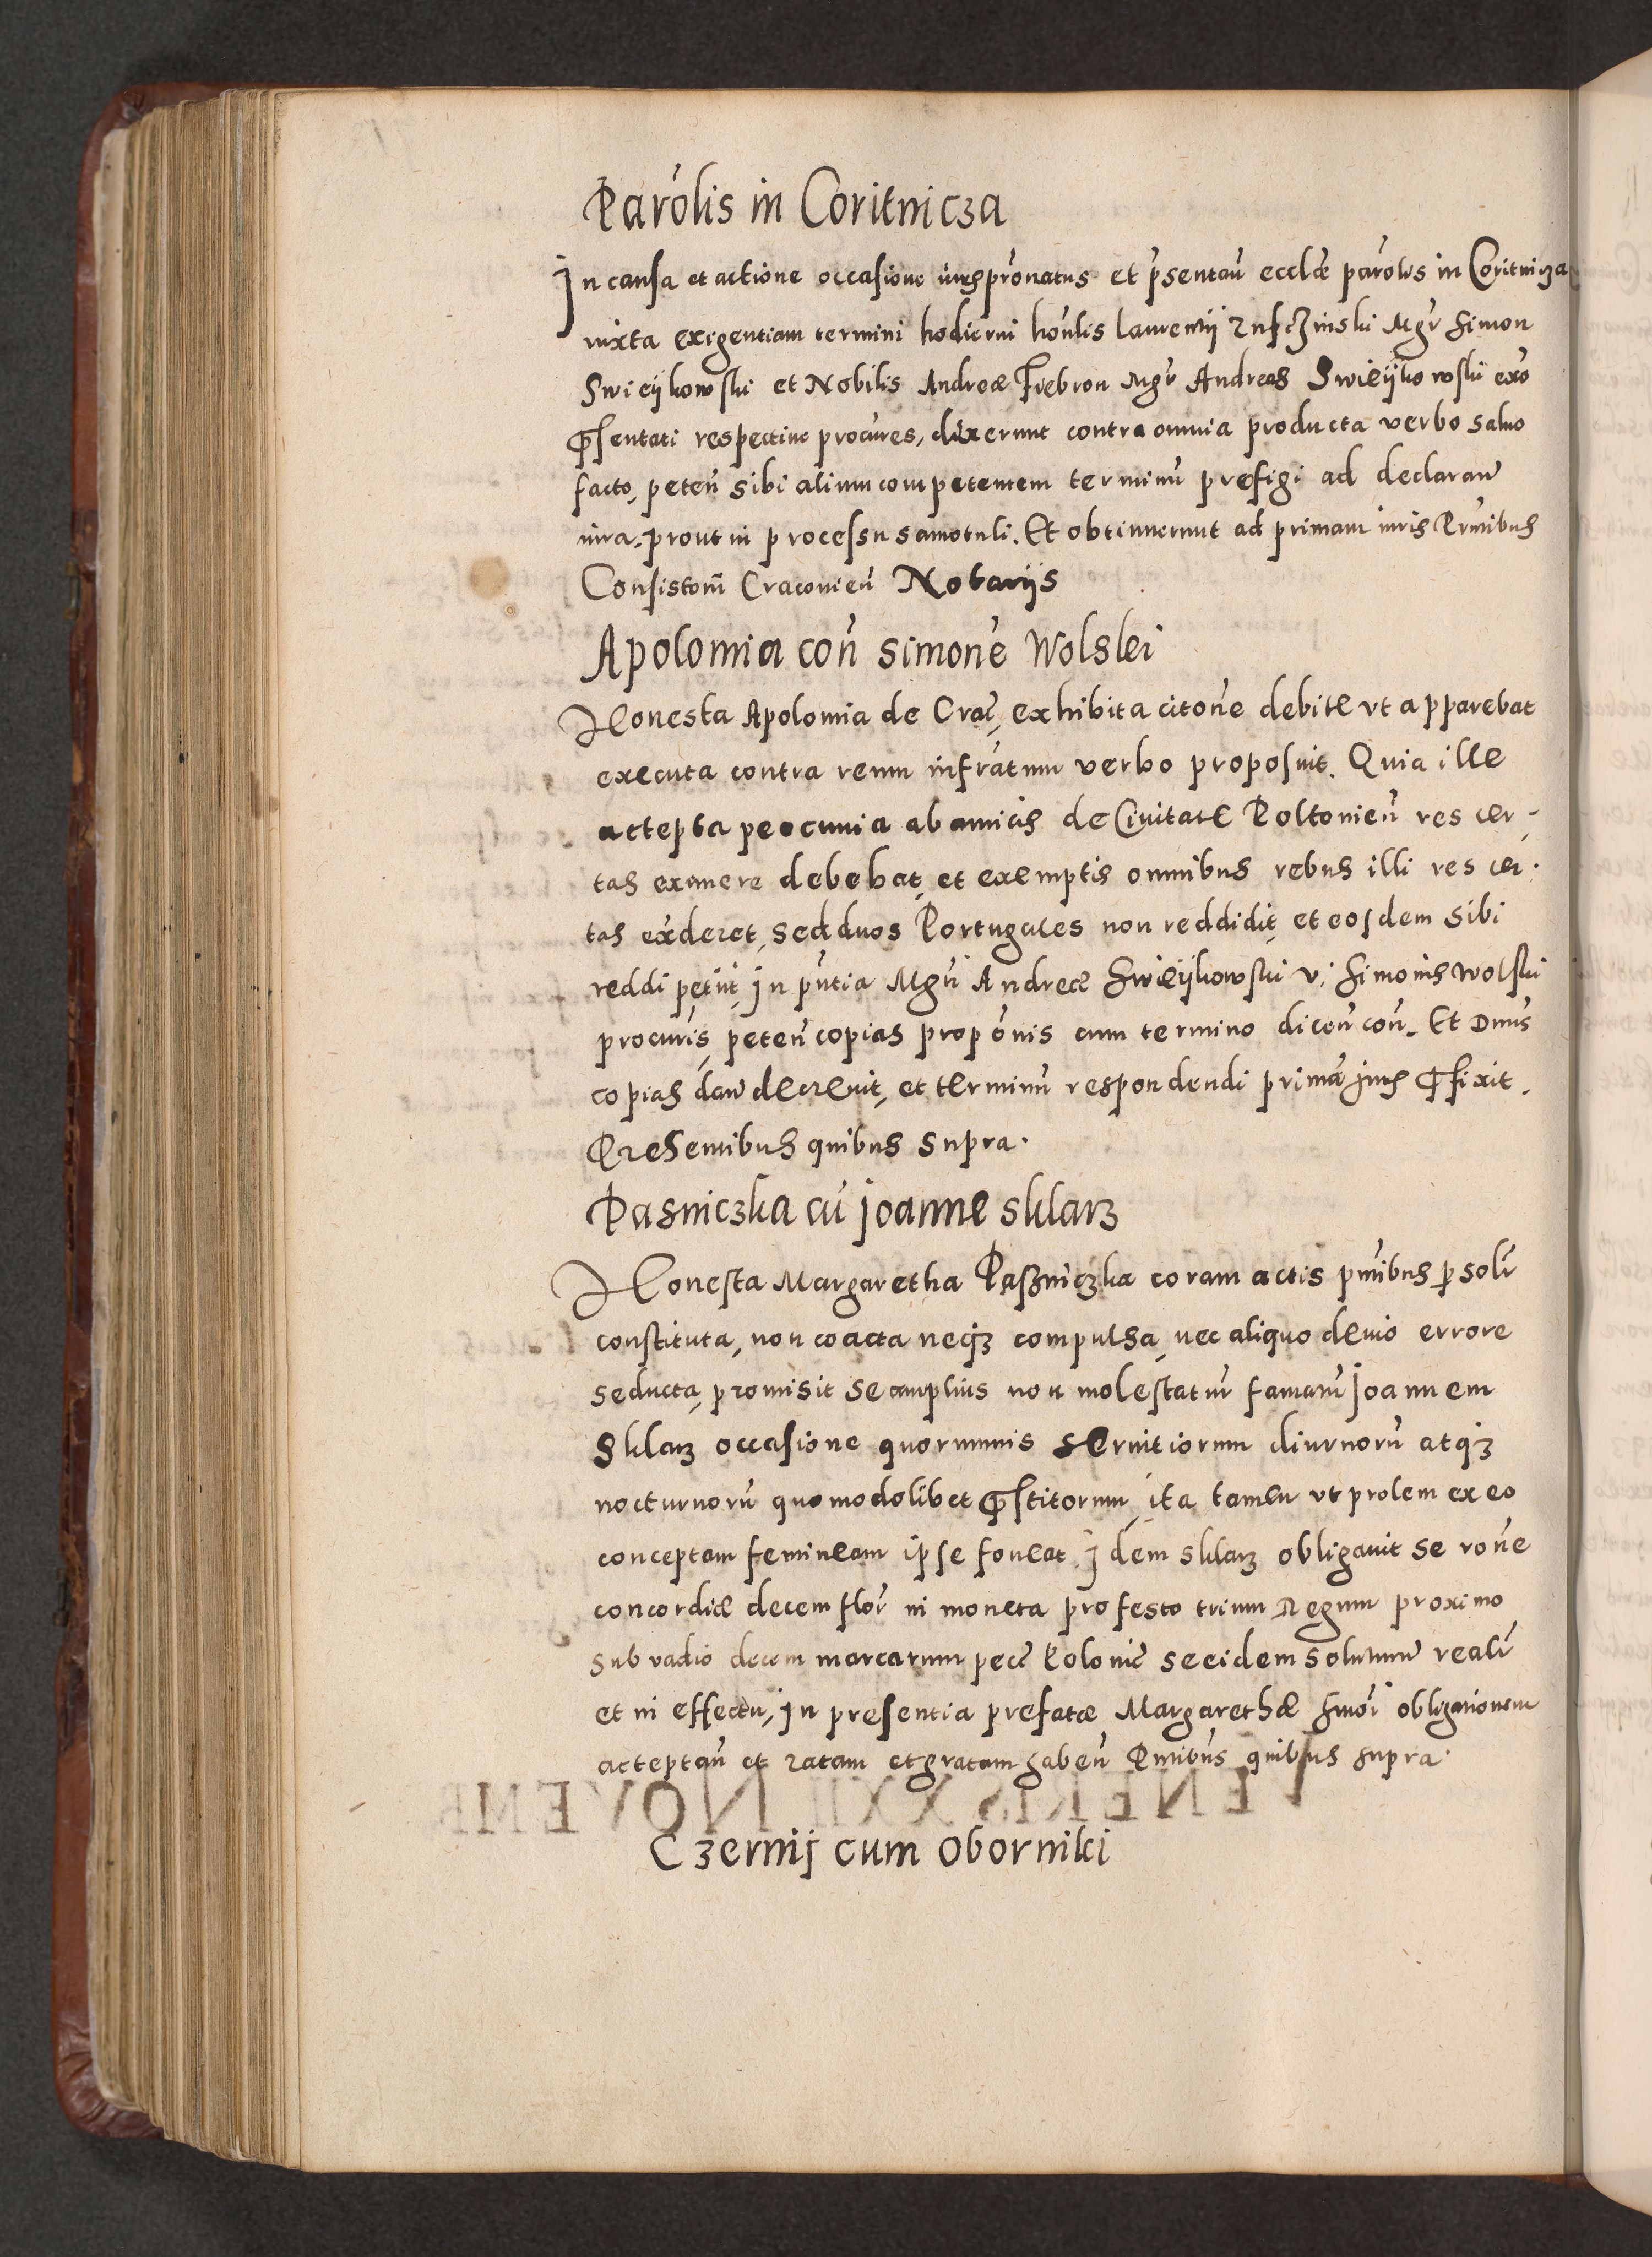 Parolis in Coritnicza
In causa et actione occasione iurispronatus et psentan eccliæ parolis in Coritnicza
iuxta exigentiam termini hodierni honlis Laurentij Mgr Simon
Swieijkowski et Nobilis Andreæ Trebron Mgr Andreas Swieijkowski exo
Psentati respective procures, dixerunt contra omnia producta verbo salvo
facto, peten sibi alium competentem terminu prefigi ad declaran
iura, prout in processu samotuli. Et obtinuerunt ad primam iuris Prntibus
Consistorij Cracovien Notarijs
Apolonia con simone Wolski
Honesta Apolonia de Crac, exhibita citone debite vt apparebat
executa contra reum infratum verbo proposuit. Quia ille
accepta peccunia ab amicis de Civitate Poltonien res cer-
tas eximere debebat, et exemptis omnibus rebus illi res cer-
tas exderet, sed duos Portugales non reddidit, et eosdem sibi
reddi petijt, In pntia Mgri Andreæ Swieijkowski vi Simonis Wolski
procuris, peten copias propōnis cum termino dicen con. Et Dnus
copias dan decrevit, et terminu respondendi prima iuris Pfixit.
Presentibus quibus supra.
Pasniczka cu Joanne sklarz
Honesta Margaretha Paszniczka coram actis pntibus psolr
constituta, non coacta neqz compulsa, nec aliquo devio errore
seducta, promisit se amplius non molestatur famatu Joannem
Sklarz occasione quorumvis servitiorum diurnoru atqz
nocturnoru quomodolibet Pstitorum, ita tamen vt prolem ex eo
conceptam femineam ipse foveat. Idem sklarz obligavit se rone
concordiæ decem flor in moneta pro festo trium Regum proximo
sub vadio decem marcarum pecc Polonic se eidem soluturu realr
et in effectu, In presentia prefatæ Margarethæ hmoi obligationem
acceptan et ratam et gratam haben Pntibus quibus supra.
Czernij cum Obornikci